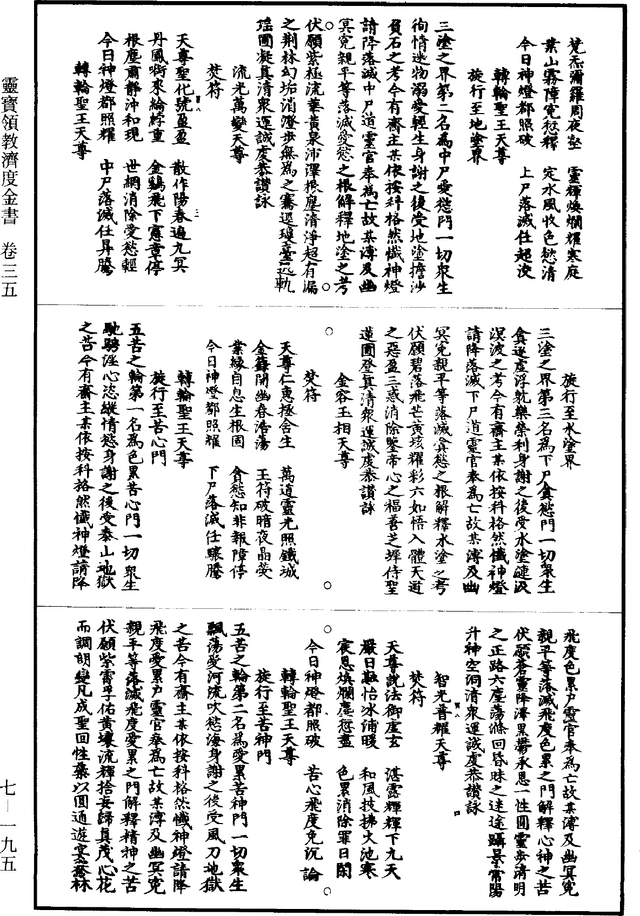 靈寶領教濟度金書 卷三五
七—一九五
梵炁彌羅周夜壑 靈輝煥爛耀寒庭
業山霧障冤愆釋 定水風收色慾清
今日神燈都照破 上尸落滅任超淩
轉輪聖王天尊
旋行至地塗界
三塗之界第二名為中尸愛慾門一切衆生
徇情迷物溺愛輕生身謝之後受地塗擔沙
負石之考今有齋主某依按科格然懺神燈
請降落滅中尸道靈官奉為亡故某溥及幽
冥冤親平等落滅愛慾之根解釋地塗之考
伏願紫極流華黃泉沛澤根塵清淨超有漏
之荆林幻垢消澄步無為之騫逕瓊臺孤軌
瑶圃凝真清衆運誠度恭讚詠
流光萬變天尊
焚符
天尊聖化號盈盈 散作陽春遍九冥
丹鳳啣來綸綍重 金鷄飛下憲章停
根塵肅靜沖和現 世網消除愛慾輕
今日神燈都照耀 中尸落滅任昇騰
轉輪聖王天尊
旋行至水塗界
三塗之界第三名為下尸貪慾門一切衆生
貪迷虛浮躭樂榮利身謝之後受水塗漣汲
溟波之考今有齋主某依按科格然懺神燈
請降落滅下尸道靈官奉為亡故某溥及幽
冥冤親平等落滅貪慾之根解釋水塗之考
伏願碧落飛芒黃垓耀彩六如悟入體天道
之惡盈三惑消除鑒帝心之福善芝墀侍聖
蓮圃登真清衆運誠度恭讚詠
金容玉相天尊
焚符
天尊仁惠拯含生 萬道靈光照鐵城
金籙開幽春浩蕩 玉符破暗夜晶熒
業緣自息生根固 貪慾知非報障停
今日神燈都照耀 下尸落滅任驤騰
轉輪聖王天尊
旋行至苦心門
五苦之輪第一名為色累苦心門一切衆生
馳騁淫心恣縱情慾身謝之後受泰山地獄
之苦今有齋主某依按科格然懺神燈請降
飛度色累戶靈官奉為亡故某溥及幽冥冤
親平等落滅飛度色累之門解釋心神之苦
伏願蒼靈降澤黑鬱承恩一性圓靈步清明
之正路六塵蕩滌回昏昧之迷途躡景常陽
升神空洞清衆運誠度恭讚詠
智光普耀天尊
焚符
天尊說法御虛玄 湛露輝輝下九天
嚴日融怡冰浦暖 和風技拂火池寒
宸恩煥爛塵愆盡 色累消除罪日閑
今日神燈都照破 苦心飛度免沉淪
轉輪聖王天尊
旋行至苦神門
五苦之輪第二名為愛累苦神門一切衆生
飄蕩愛河流吹慾海身謝之後受風刀地獄
之苦今有齋主某依按科格然懺神燈請降
飛度愛累戶靈官奉為亡故某溥及幽冥冤
親平等落滅飛度愛累之門解釋精神之苦
伏願紫霄孚佑黃壤流輝捨妄歸真茂心花
而調朗變凡成聖回性葉以圓通遊宴騫林